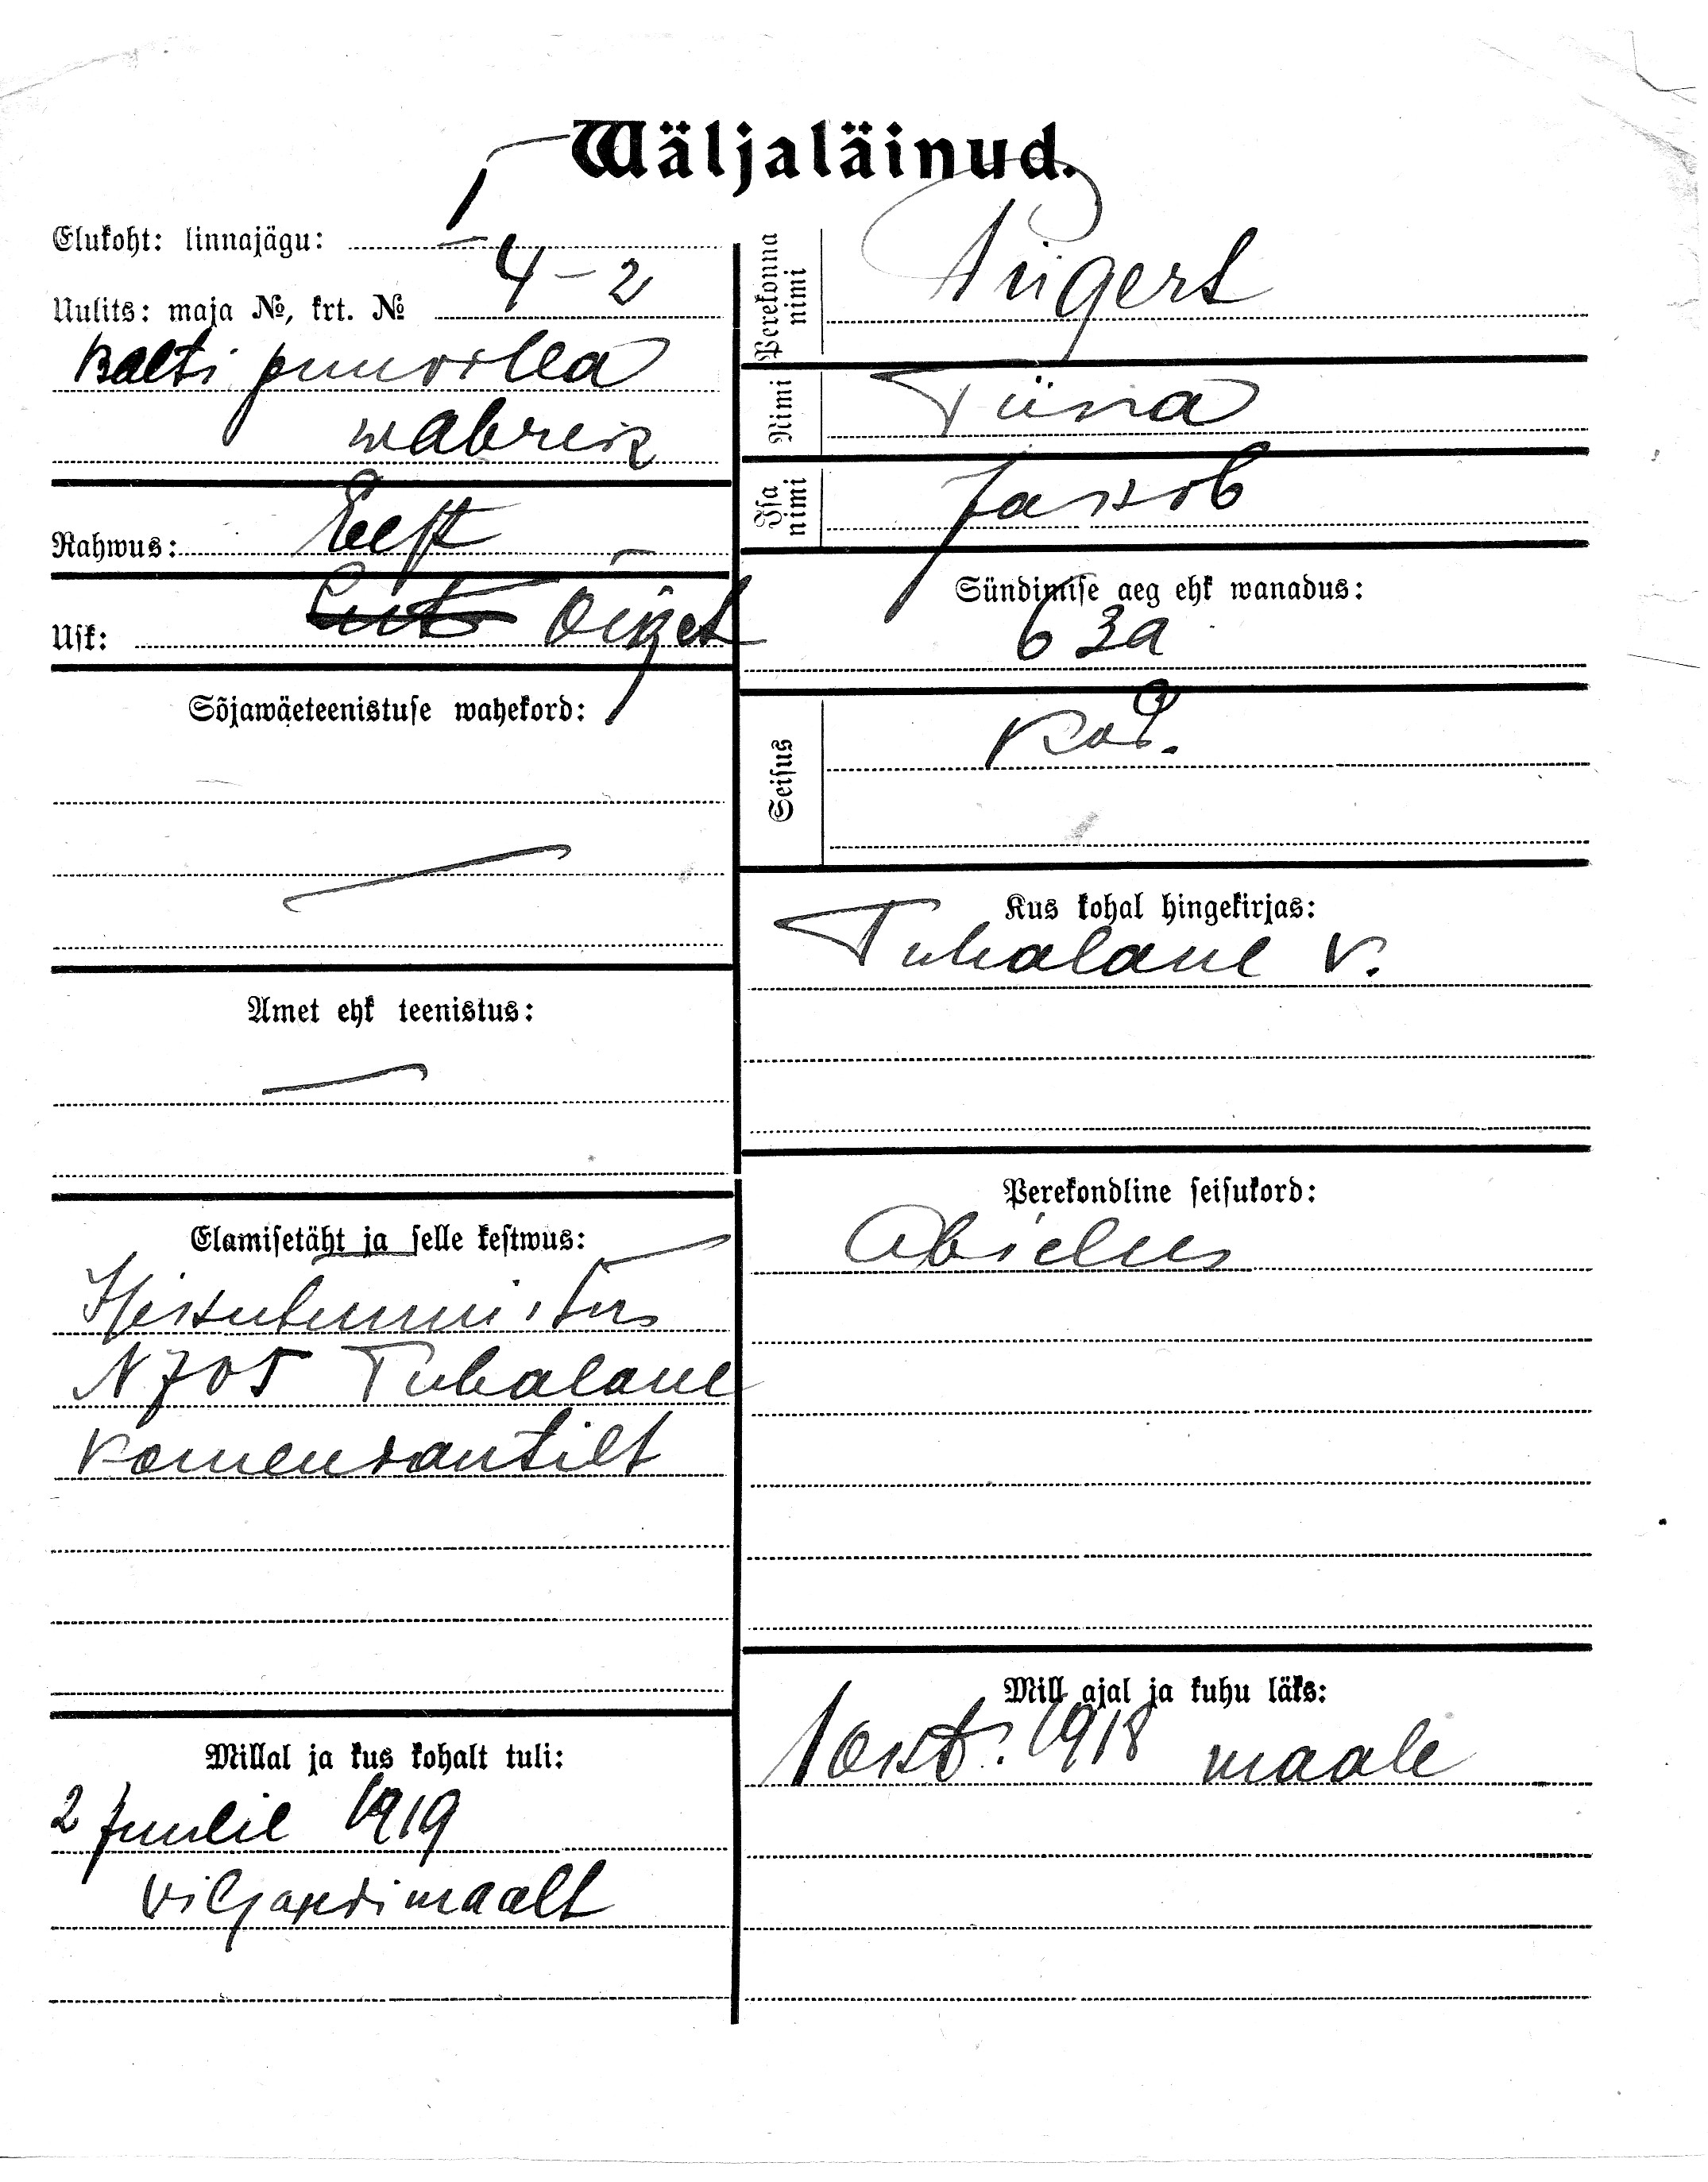 Wäljaläinud.
Elukoht: linnajägu: I
Uulits: maja №, krt. № 4-2
Balti puuvilla
wabrik
Rahwus: Eest
Usk: Lut Õiget
Sõjawäeteenistuse wahekord:
Amet ehk teenistus:
Elamisetäht ja selle kestwus:
Isikutunnistus
N 705 Tuhalane
komendantilt
Millal ja kus kohalt tuli:
2 Juulil 1919
Viljandimaalt
Perekonna nimi
Nimi Tiina
Isa nimi Jakob
Sündimise aeg ehk wanadus:
63a
Seisus
Kus kohal hingekirjas:
Tuhalane v.
Perekondline seisukord:
Abielus
Mill ajal ja kuhu läks:
1 okt. 1918 maale